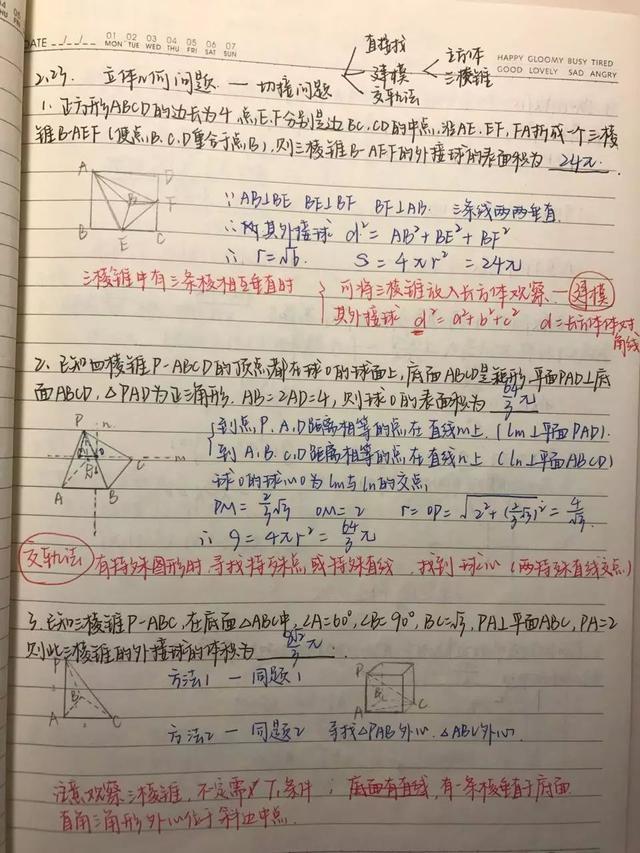 DATE / / 01 02 03 04 05 06 07 MON TUE WED THU FRI SAT SUN HAPPY GLOOMY BUSY TIRED GOOD LOVELY SAD ANGRY
2.23. 立体几何问题 — 切接问题 直接找 建模 交轨法 长方体 三棱锥
1. 正方形ABCD的边长为4,点E,F分别是边BC,CD的中点,沿AE,EF,FA折成一个三棱
锥B-AEF(使点B,C,D重合于点B),则三棱锥B-AEF的外接球的表面积为 24π.
A D B F B E C
∵ AB⊥BE BE⊥BF BF⊥AB. 三条线两两垂直
∴ 其外接球 d²=AB²+BE²+BF²
∴ r=√6. S=4πr²=24π
三棱锥中有三条棱相互垂直时 可将三棱锥放入长方体观察—建模
其外接球 d²=a²+b²+c² d=长方体体对
角线
2. 已知四棱锥P-ABCD的顶点都在球O的球面上,底面ABCD是矩形,平面PAD⊥底
面ABCD,△PAD为正三角形,AB=2AD=4,则球O的表面积为 64/3 π
到点P、A、D距离相等的点在直线m上.(lm⊥平面PAD).
到A、B、C、D距离相等的点在直线n上 (ln⊥平面ABCD)
球O的球心O为lm与ln的交点
P n m C A B
PM=2/3√3 OM=2 r=OP=√(2²+(2/3√3)²)=4/√3.
∴ S=4πr²=64/3 π
交轨法 有特殊图形时,寻找特殊点或特殊直线 找到球心(两特殊直线交点)
3. 已知三棱锥P-ABC,在底面△ABC中,∠A=60°,∠B=90°,BC=√3,PA⊥平面ABC,PA=2
则此三棱锥的外接球的体积为 8√2/3 π
P B A C
方法1 — 同题1
P B A C
方法2 — 同题2 寻找△PAB外心,△ABC外心
注意观察三棱锥,不一定需 条件; 底面有直线,有一条棱垂直于底面
直角三角形外心位于斜边中点.